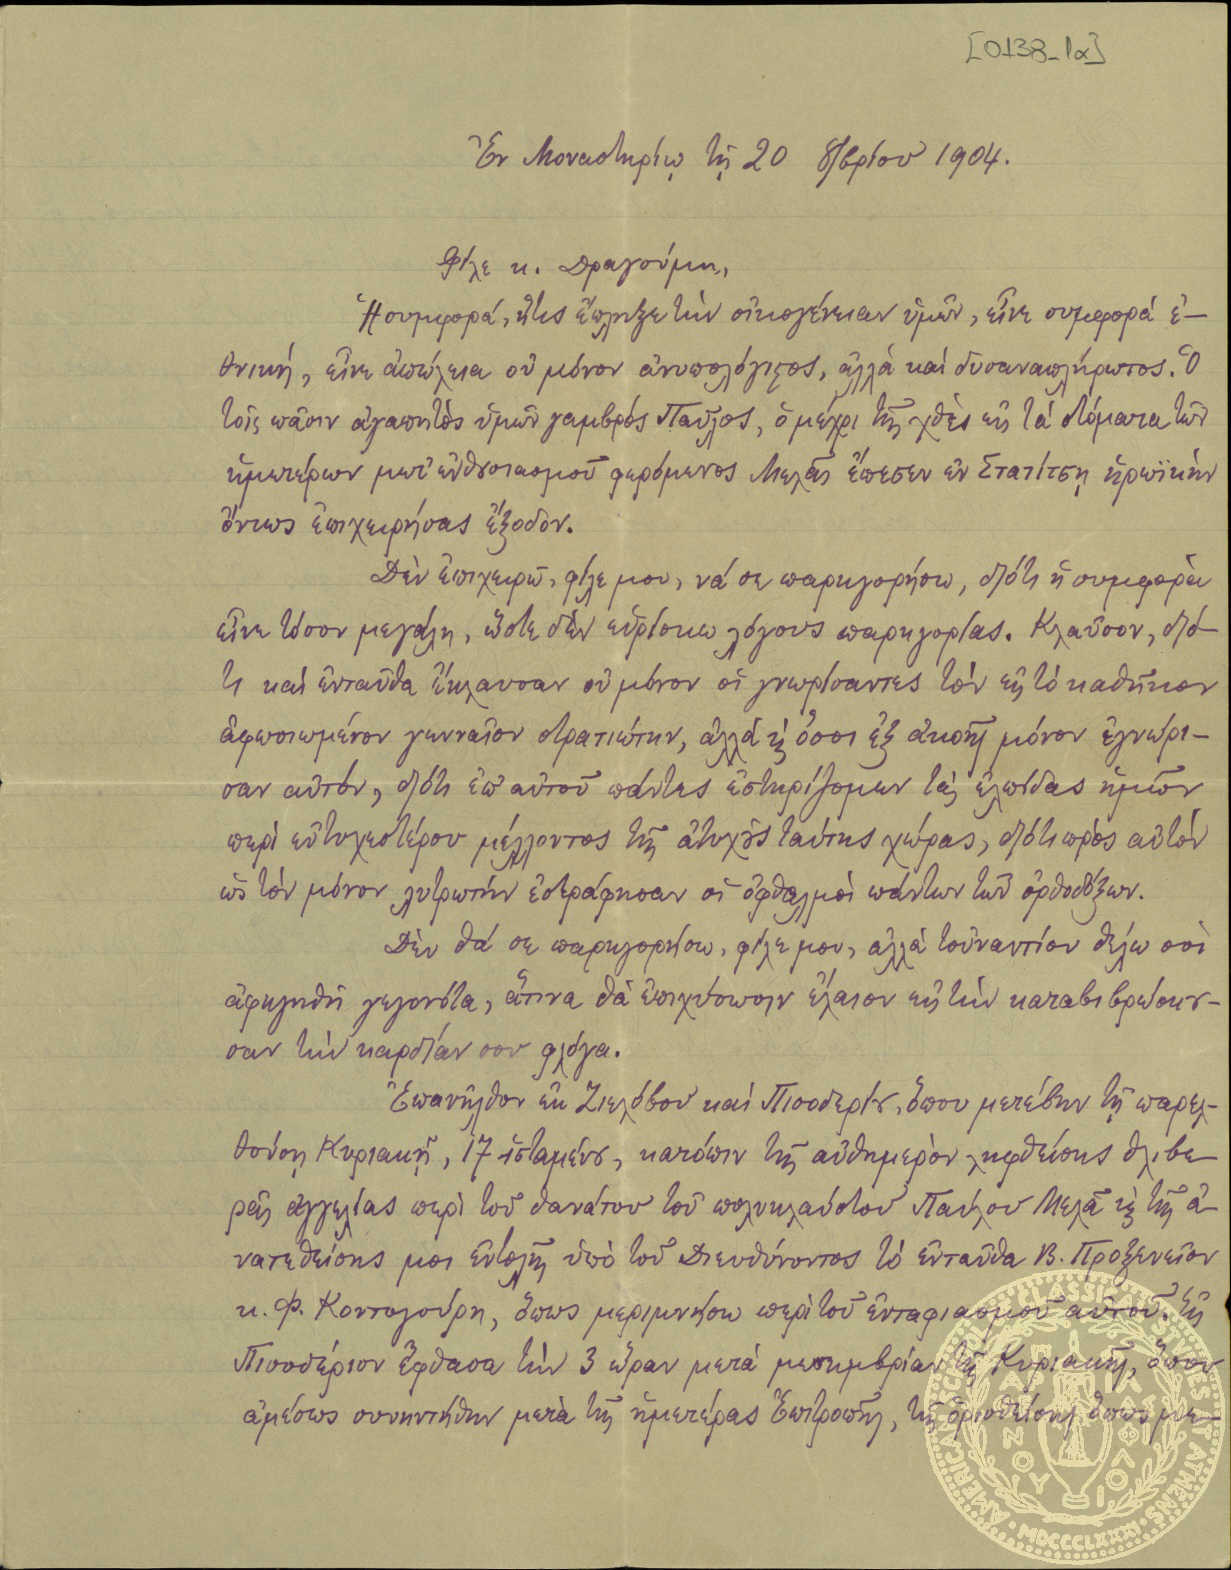 [0138_1α]
Ἐν Μοναστηρίῳ τῇ 20 8/βρίου 1904.
Φίλε κ. Δραγούμη,
Ἡ συμφορά, ἥτις ἔπληξε τὴν οἰκογένειαν ὑμῶν, εἶνε συμφορά ἐ-
θνική, εἶνε ἀπώλεια οὐ μόνον ἀνυπολόγιστος, ἀλλὰ καὶ δυσαναπλήρωτος. Ὁ
τοῖς πᾶσιν ἀγαπητὸς ὑμῶν γαμβρός Παῦλος, ὁ μέχρι τῆς χθὲς εἰς τὰ στόματα τῶν
ἡμετέρων μετ' ἐνθουσιασμοῦ φερόμενος Μελᾶς ἔπεσεν ἐν Στατίτσῃ ἡρωϊκὴν
ὄντως ἐπιχειρήσας ἔξοδον.
Δὲν ἐπιχειρῶ, φίλε μου, νά σε παρηγορήσω, διότι ἡ συμφορὰ
εἶνε τόσον μεγάλη, ὥστε δὲν εὑρίσκω λόγους παρηγορίας. Κλαῦσον, διό-
τι καὶ ἐνταῦθα ἔκλαυσαν οὐ μόνον οἱ γνωρίσαντες τὸν εἰς τὸ καθῆκον
ἀφωσιωμένον γενναῖον στρατιώτην, ἀλλὰ κ̀ ὅσοι ἐξ ἀκοῆς μόνον ἐγνώρι-
σαν αὐτόν, διότι ἐπ' αὐτοῦ πάντες ἐστηρίζομεν τὰς ἐλπίδας ἡμῶν
περὶ εὐτυχεστέρου μέλλοντος τῆς ἀτυχοῦς ταύτης χώρας, διότι πρὸς αὐτὸν
ὡς τὸν μόνον λυτρωτὴν ἐστράφησαν οἱ ὀφθαλμοὶ πάντων τῶν ὀρθοδόξων.
Δὲν θά σε παρηγορήσω, φίλε μου, ἀλλὰ τοὐναντίον θέλω σοὶ
ἀφηγηθῆ γεγονότα, ἅτινα θὰ ἐπιχύσωσιν ἔλαιον εἰς τὴν καταβιβρώσκου-
σαν τὴν καρδίαν σου φλόγα.
Ἐπανῆλθον ἐκ Ζιελόβου καὶ Πισοδερίου, ὅπου μετέβην τῇ παρελ-
θούσῃ Κυριακῇ, 17 ἱσταμένου, κατόπιν τῆς αὐθημερὸν ληφθείσης θλιβε-
ρᾶς ἀγγελίας περὶ τοῦ θανάτου τοῦ πολυκλαύστου Παύλου Μελᾶ κ̀ τῆς ἀ-
νατεθείσης μοι ἐντολῆς ὑπὸ τοῦ Διευθύνοντος τὸ ἐνταῦθα Β. Προξενεῖον
κ. Φ. Κοντογούρη, ὅπως μεριμνήσω περὶ τοῦ ἐνταφιασμοῦ αὐτοῦ. Εἰς
Πισοδέριον ἔφθασα τὴν 3 ὥραν μετὰ μεσημβρίαν τῆς Κυριακῆς, ὅπου
ἀμέσως συνηντήθην μετὰ τῆς ἡμετέρας Ἐπιτροπῆς, τῆς ὁρισθείσης ὅπως με-
AMERICAN SCHOOL OF CLASSICAL STUDIES AT ATHENS
MDCCCLXXXI